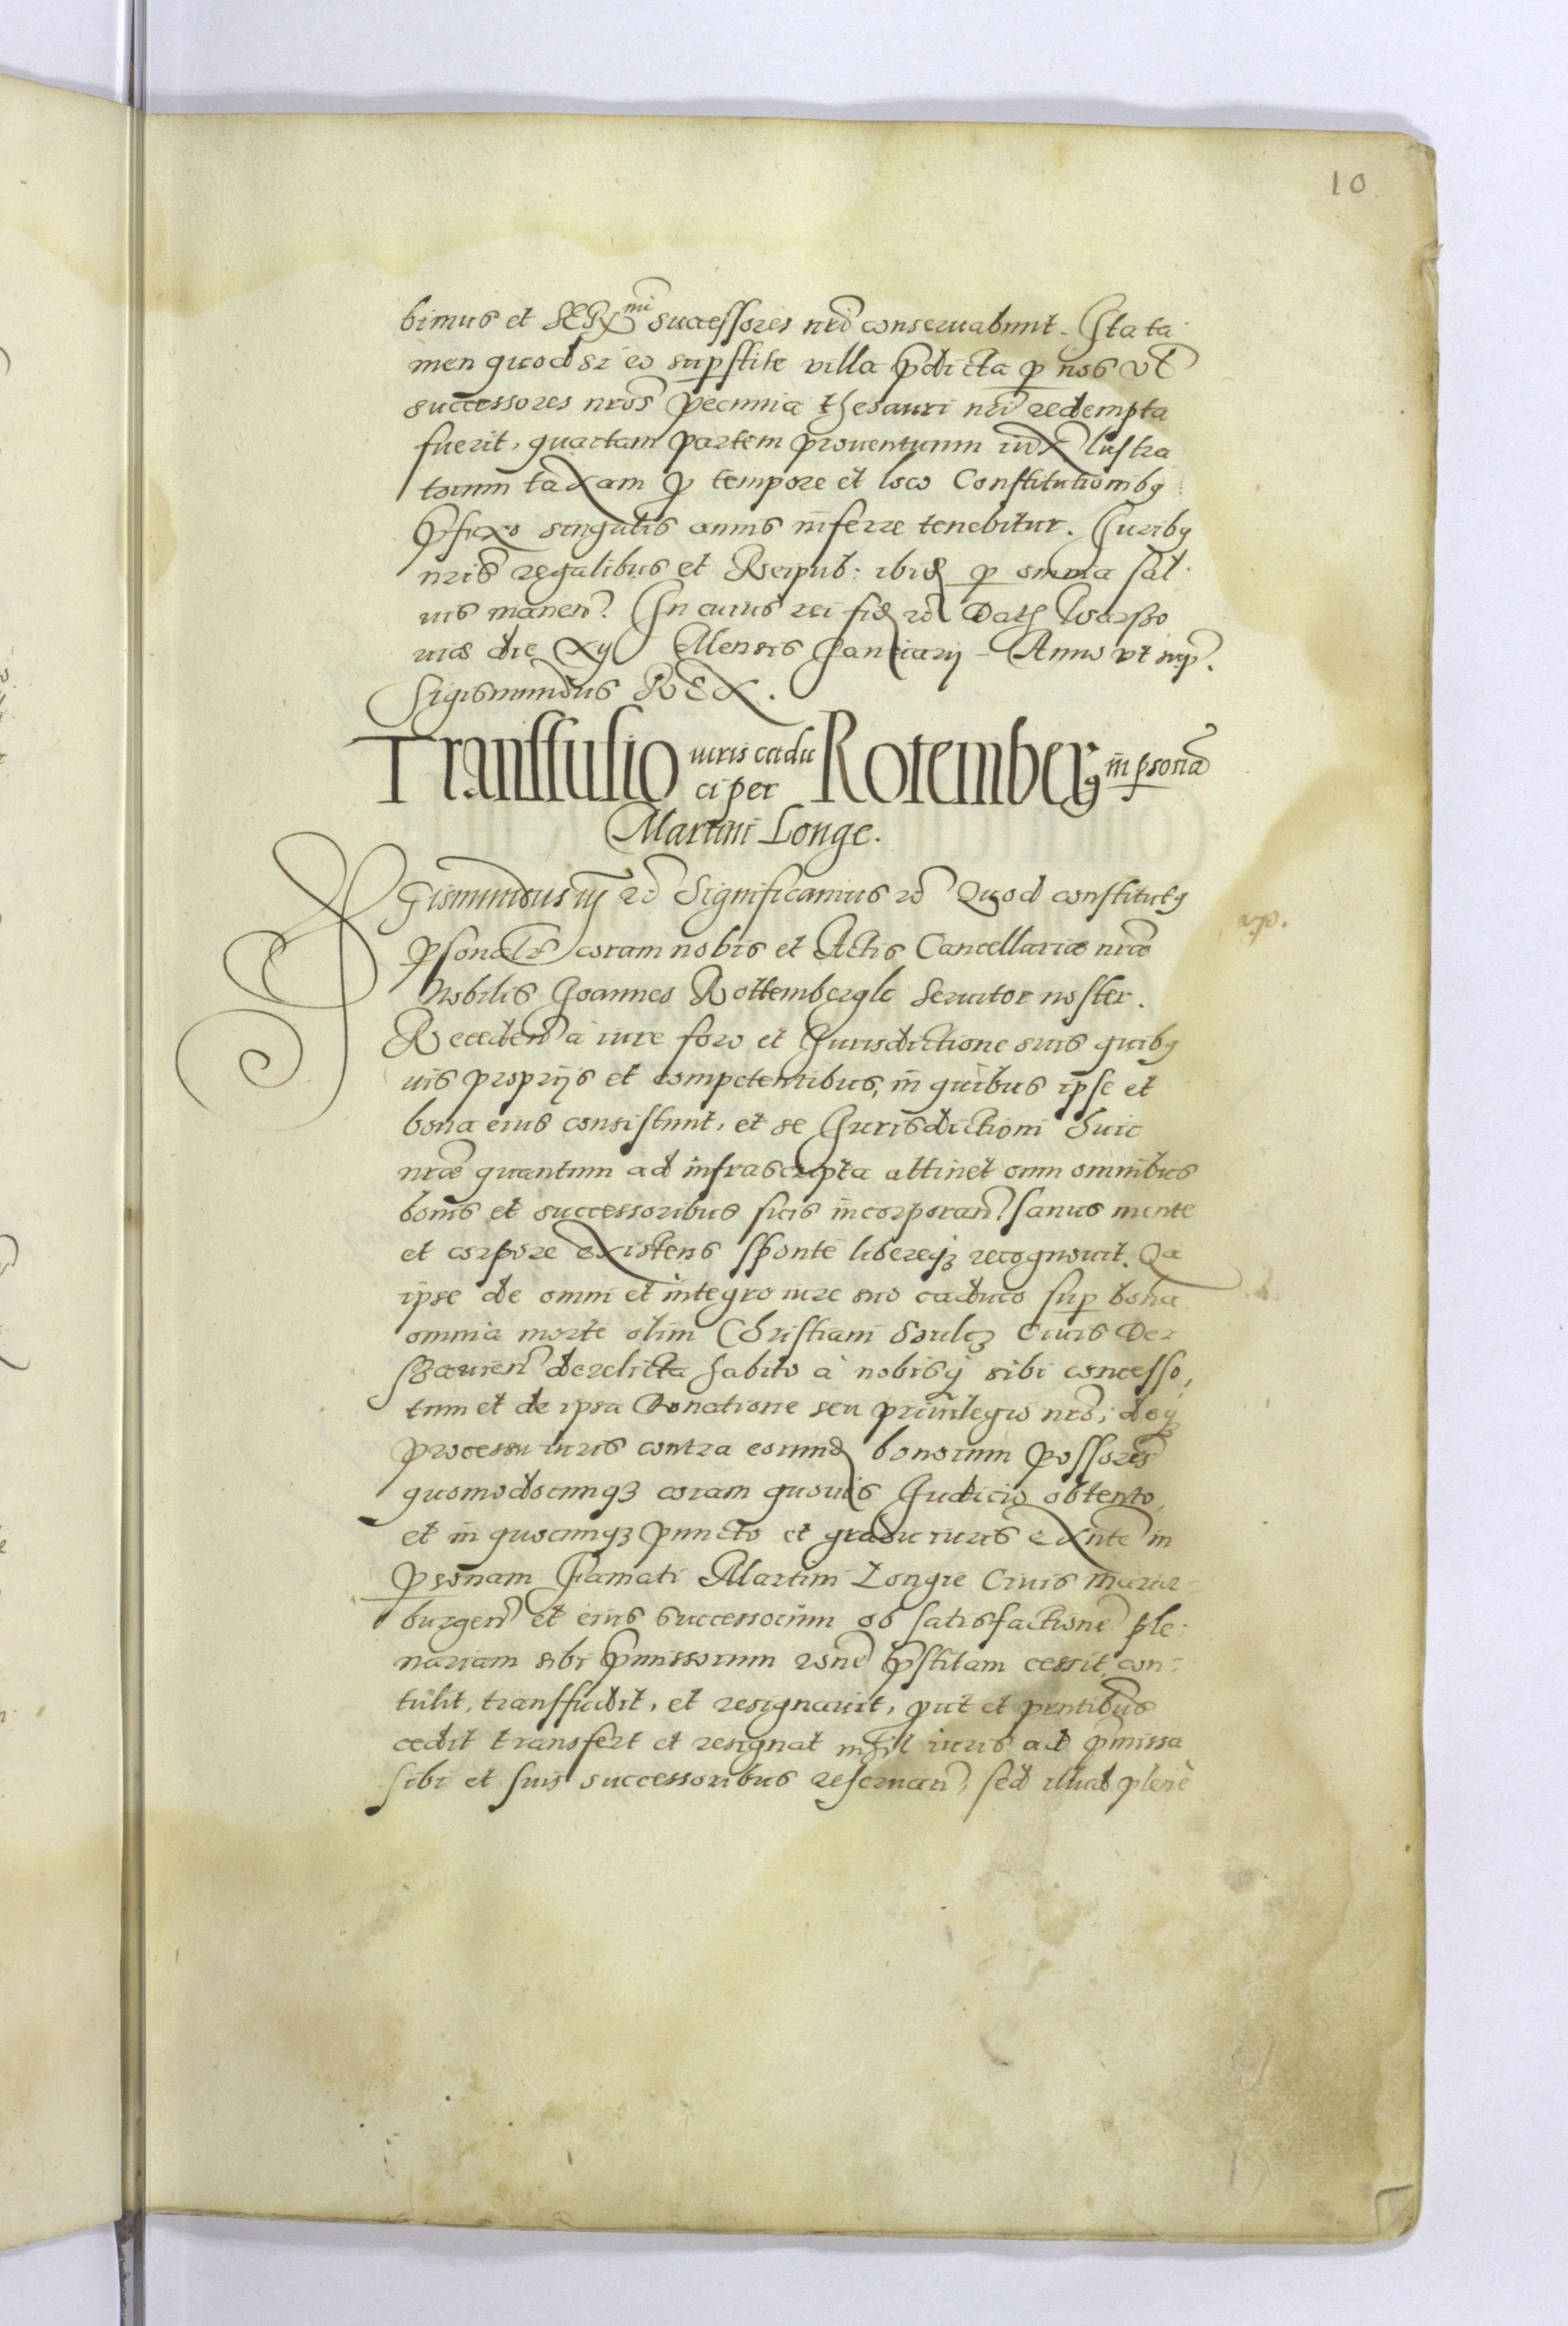 10
bimus et SERX^mi successores nrō conseruabunt. Ita ta
men quod si eo sup̱stite villa p̄dicta ꝑ nos vl̃
successores nros̃ pecunia thesauri nrĩ redempta
fuerit, quartam partem prouentuum iux̃ lustra
torum taxam ꝓ tempore et loco Constitutionibꝫ
p̄fixo singulis annis inferre tenebitur. Juribꝫ
nris̃ regalibus et Reipub: ibid̃ ꝑ omnia sal
uis manen̄. In cuius rei fid̃ rc̃ Dat̃ Warsso
uiæ die xv Mensis Januarij Anno vt sup̱.
Sigismundus REX.
Transfusio iuris cadu
ci per Rotemberg in ꝑsonã
Martini Longe.
SIgismundus iij rc̃ Significamus rc̃ Quod constitutꝰ
ꝑsonalr̃ coram nobis et Actis Cancellariæ nræ̃
Nobilis Joannes Rottembergk Seruitor noster.
Receden̄ à iure foro et Jurisdictione suis quibꝫ
uis proprijs et competentibus, in quibus ipse et
bona eius consistunt, et se Jurisdictioni huic
nræ̃ quantum ad infrascripta attinet cum omnibus
bonis et successoribus suis incorporan̄. sanus mente
et corpore existens sponte libereqꝫ recognouit. Qa
ipse de omni et integro iure suo caduco sup̱ bona
omnia morte olim Christiani Soulcz Ciuis Der
szouien̄ derelicta habito à nobisqꝫ sibi concesso,
tum et de ipsa Donatione seu priuilegio nrõ, deqꝫ
processu iuris contra eorund̃ bonorum possores̃
quomodocunqꝫ coram quouis Judicio obtento,
et in quocunqꝫ puncto et gradu iuris exñte in
ꝑsonam Famati Martini Longie Ciuis mariæ
burgen̄ et eius successorum ob satisfactionē ple
nariam sibi p̄missorum ronẽ p̄stitam cessit, con
tulit, transfudit, et resignauit, ꝓut et pn̄tibus
cedit transfert et resignat nihil iuris ad p̄missa
sibi et suis successoribus reseruan̄, sed illud plenè